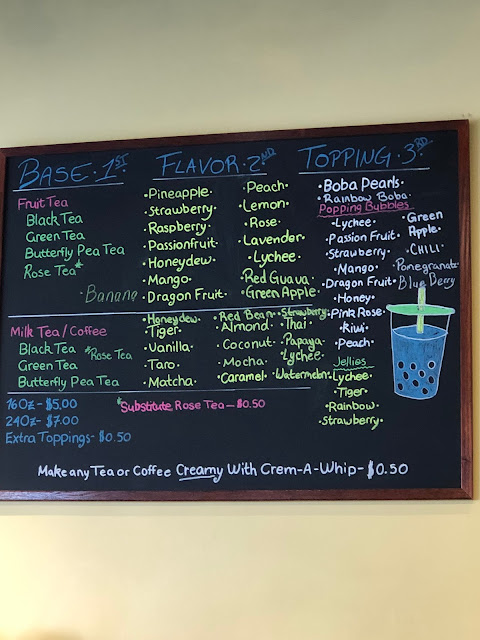 BASE · 1ST
Fruit Tea
Black Tea
Green Tea
Butterfly Pea Tea
Rose Tea*
FLAVOR · 2ND
·Pineapple·
·Strawberry·
·Raspberry·
·Passionfruit·
·Honeydew·
·Mango·
·Dragon Fruit·
·Banana
·Peach·
·Lemon·
·Rose·
·Lavender·
·Lychee·
·Red Guava·
·Green Apple·
TOPPING · 3RD
·Boba Pearls·
·Rainbow Boba·
Popping Bubbles
·Lychee·
·Passion Fruit·
·Strawberry·
·Mango·
·Dragon Fruit·
·Honey·
·Pink Rose·
·Kiwi·
·Peach·
·Green
Apple·
·CHILI·
Pomegranate
Jellies
·Lychee·
·Tiger·
·Rainbow·
·Strawberry·
Milk Tea/Coffee
Black Tea *Rose Tea
Green Tea
Butterfly Pea Tea
·Honeydew·
·Tiger·
·Vanilla·
·Taro·
·Matcha·
·Red Bean·
·Almond·
·Coconut·
·Mocha·
·Caramel·
·Strawberry·
·Thai·
·Papaya·
·Lychee·
·Watermelon·
16Oz-$5.00
24Oz-$7.00
Extra Toppings-$0.50
*Substitute Rose Tea-$0.50
Make any Tea or Coffee Creamy With Crem-A-Whip-$0.50